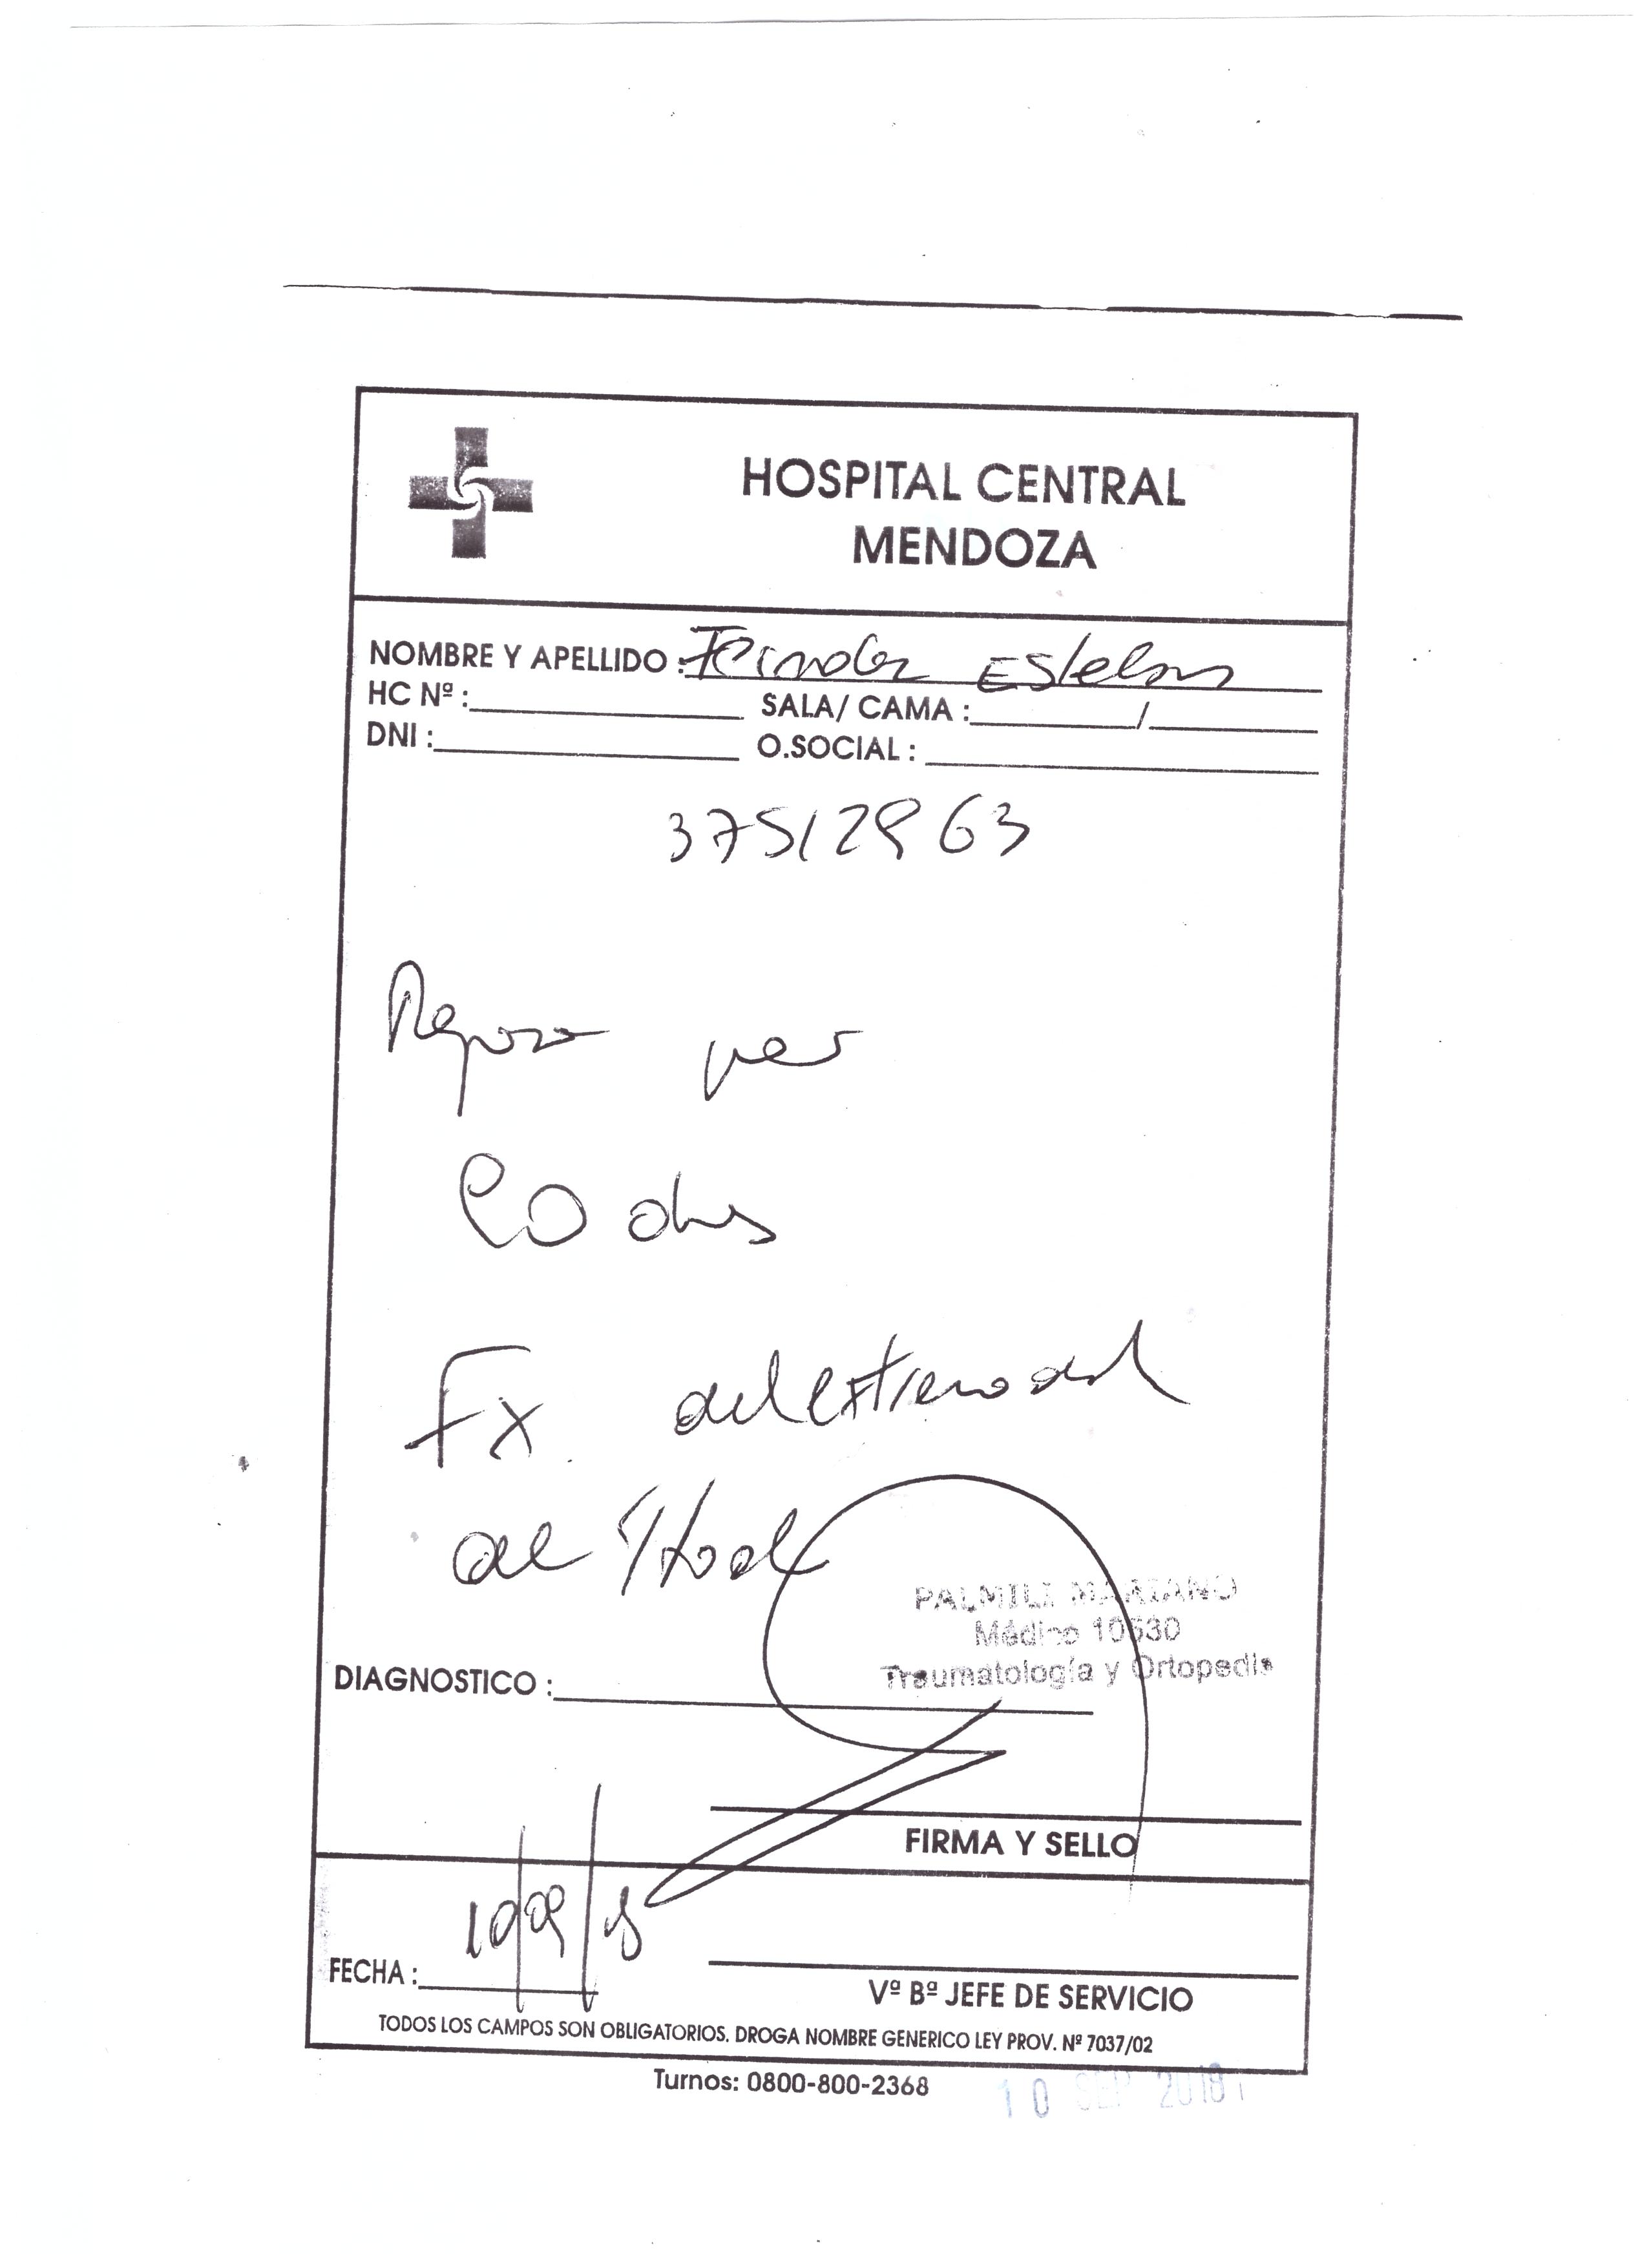 HOSPITAL CENTRAL
MENDOZA
NOMBRE Y APELLIDO : Esteban
HC Nº : SALA/ CAMA : /
DNI : O.SOCIAL :
37512963
Reposo por
dias
Fx. del extremo dist
de
PALMILI MARIANO
Médico 10630
Traumatología y Ortopedia
DIAGNOSTICO :
FIRMA Y SELLO
10/09/18
FECHA :
Vº Bº JEFE DE SERVICIO
TODOS LOS CAMPOS SON OBLIGATORIOS. DROGA NOMBRE GENERICO LEY PROV. Nº 7037/02
Turnos: 0800-800-2368
10 SEP 2018